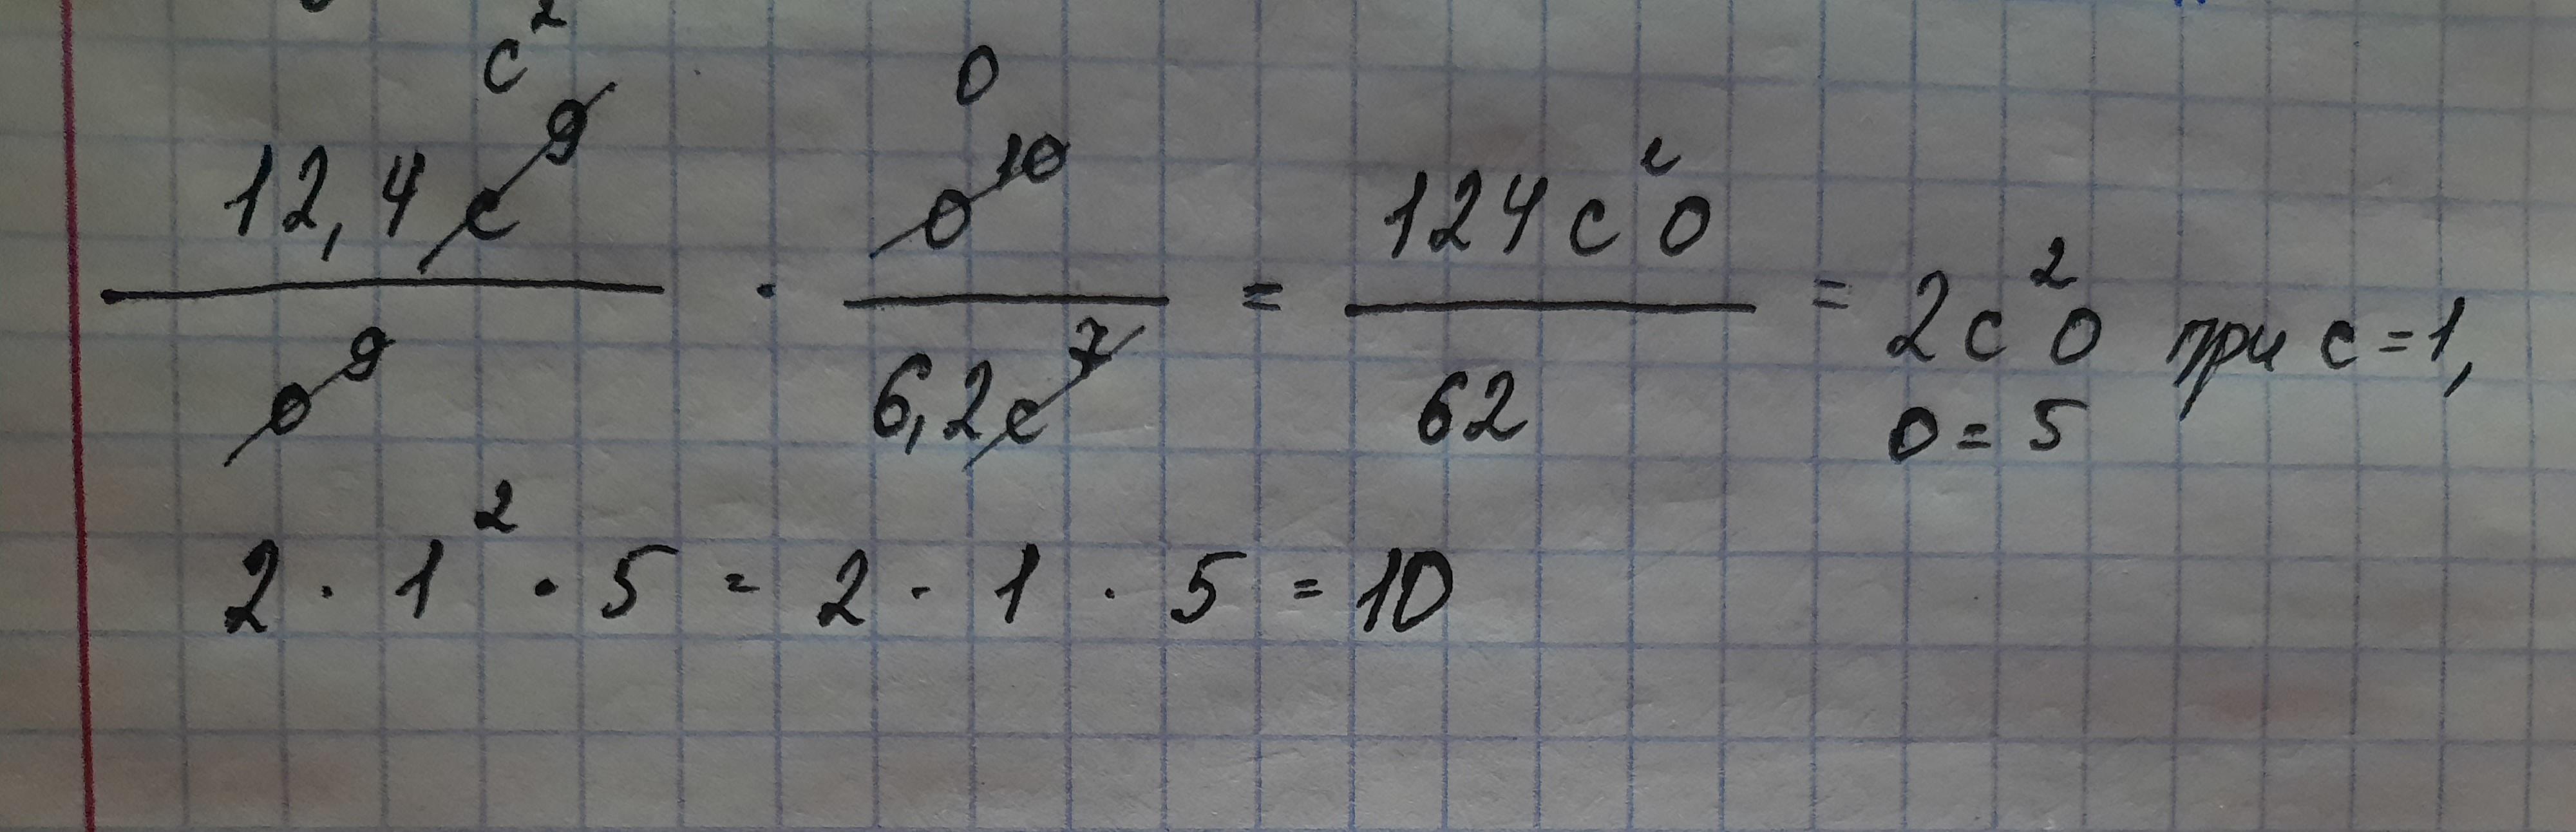 12,4c⁹/o⁹ · o¹⁰/6,2c⁷ = 124c²o/62 = 2c²o при c=1,
o=5
2 · 1² · 5 = 2 · 1 · 5 = 10